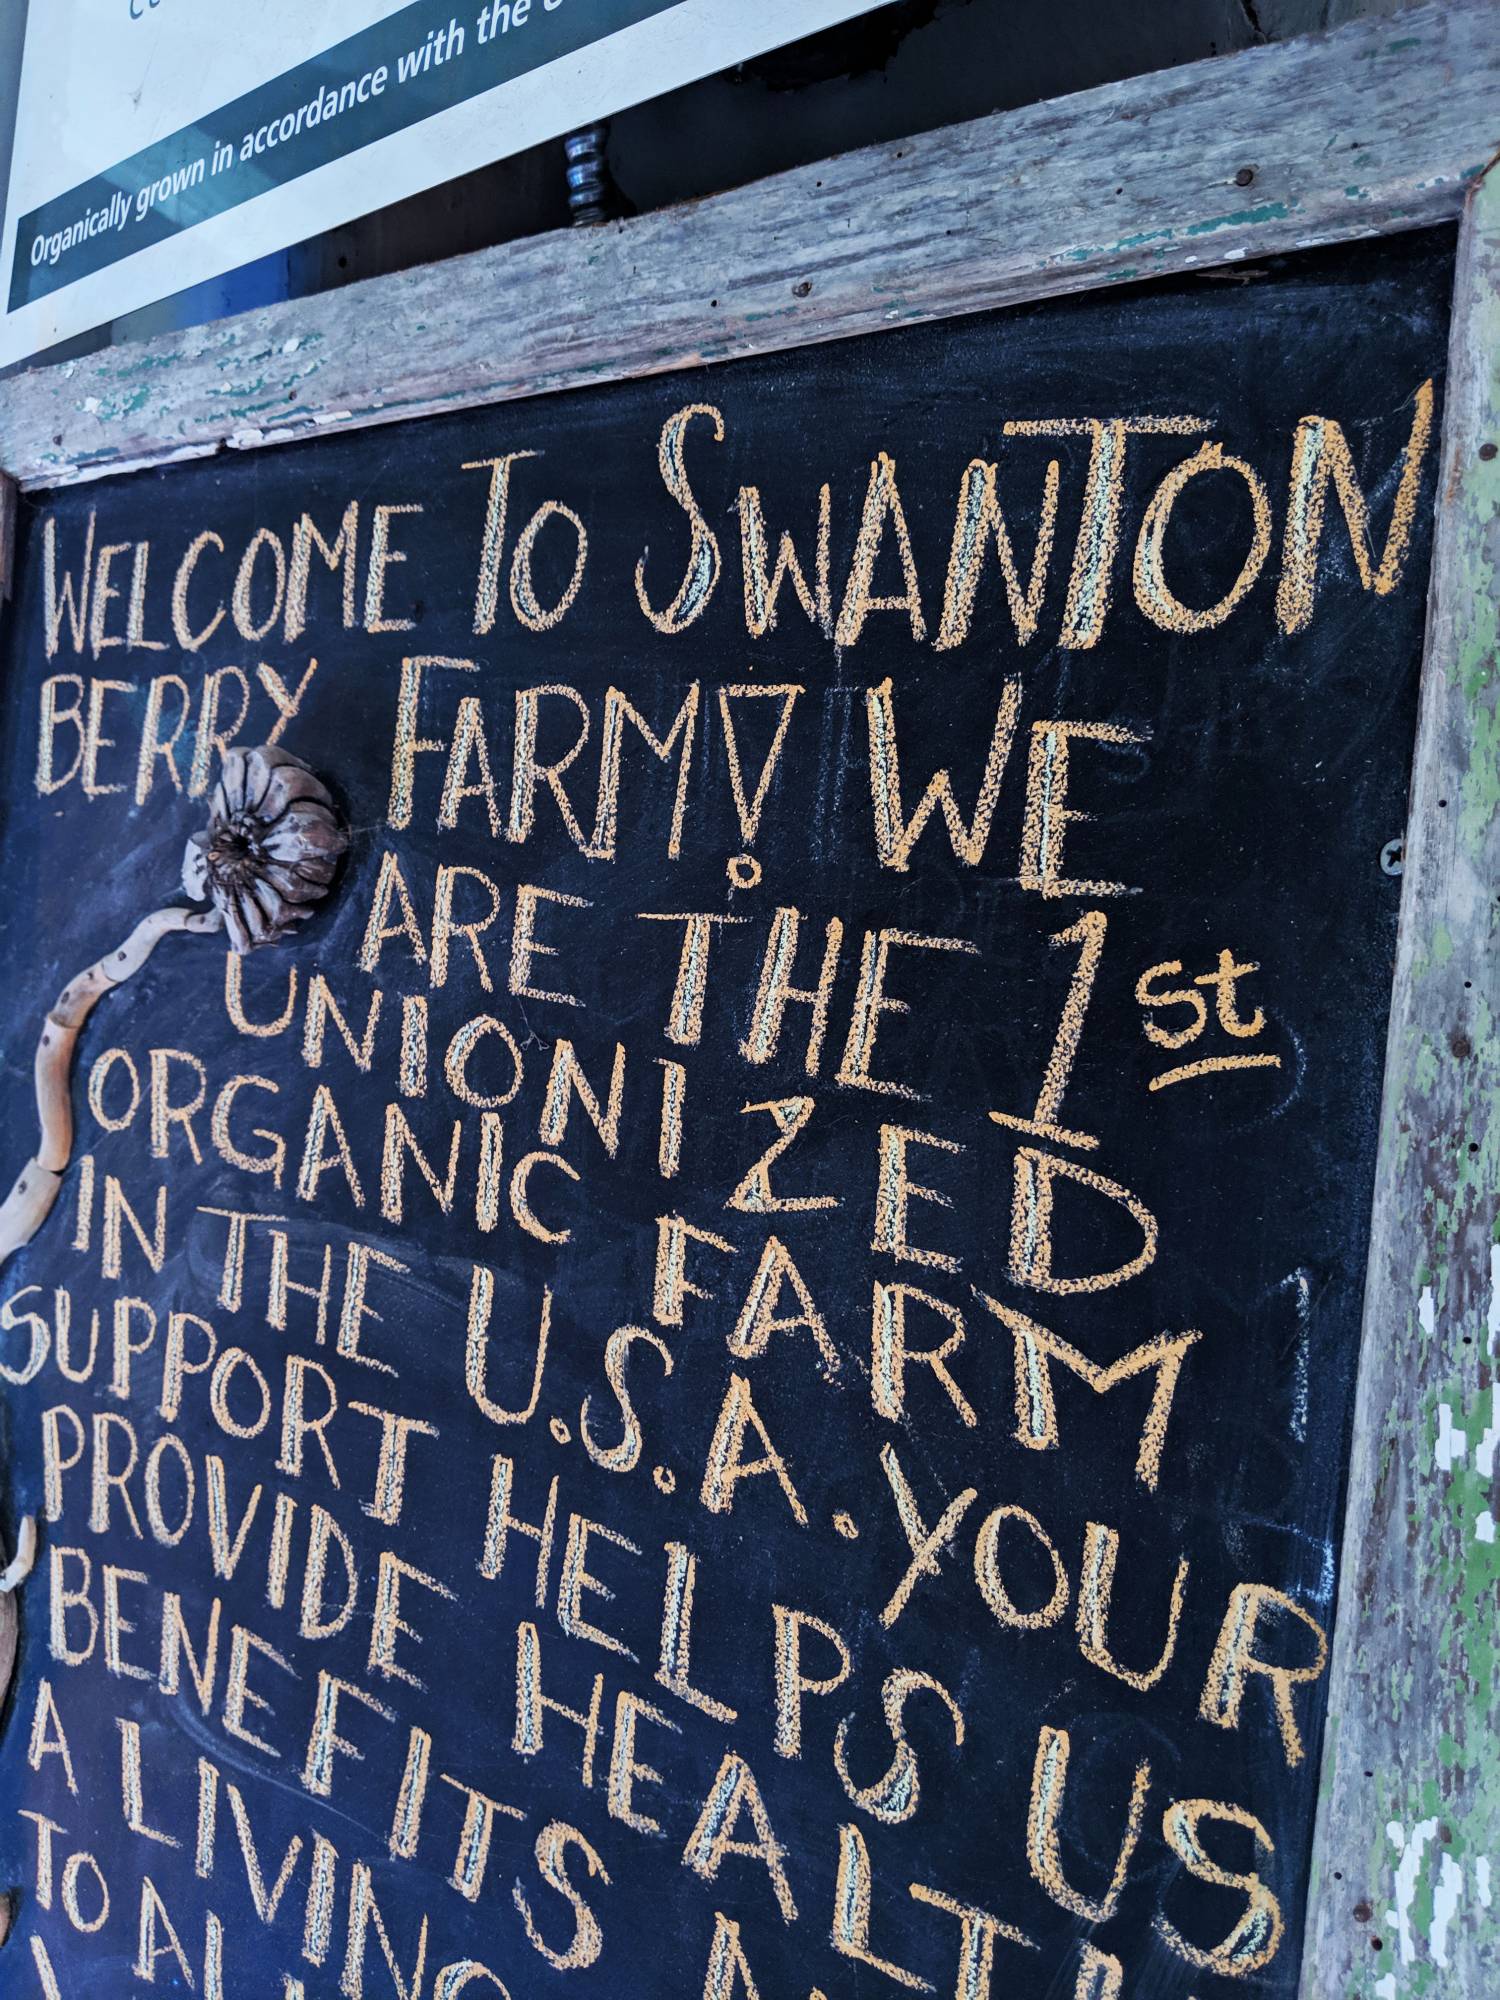 Organically grown in accordance with the
WELCOME TO SWANTON
BERRY FARM! WE
ARE THE 1st
UNIONIZED
ORGANIC FARM
IN THE U.S.A. YOUR
SUPPORT HELPS US
PROVIDE HEALTH
BENEFITS
A LIVING
TO